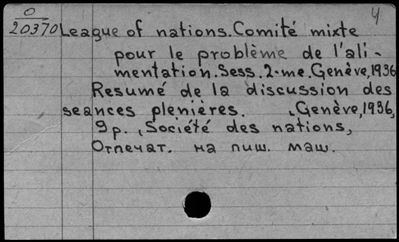 О
20370
League of nations. Comité mixte
pour le problème de l'ali-
mentation. Sess. 2-me. Genève, 1936
Resumé de la discussion des
seances plenières. Genève, 1936,
9p., Société des nations,
Отпечат. на пиш. маш.
4